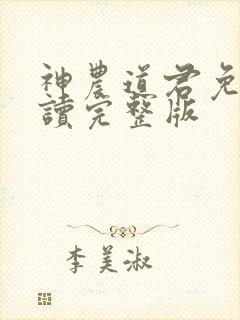 神農道君免
讀完整版
李美淑